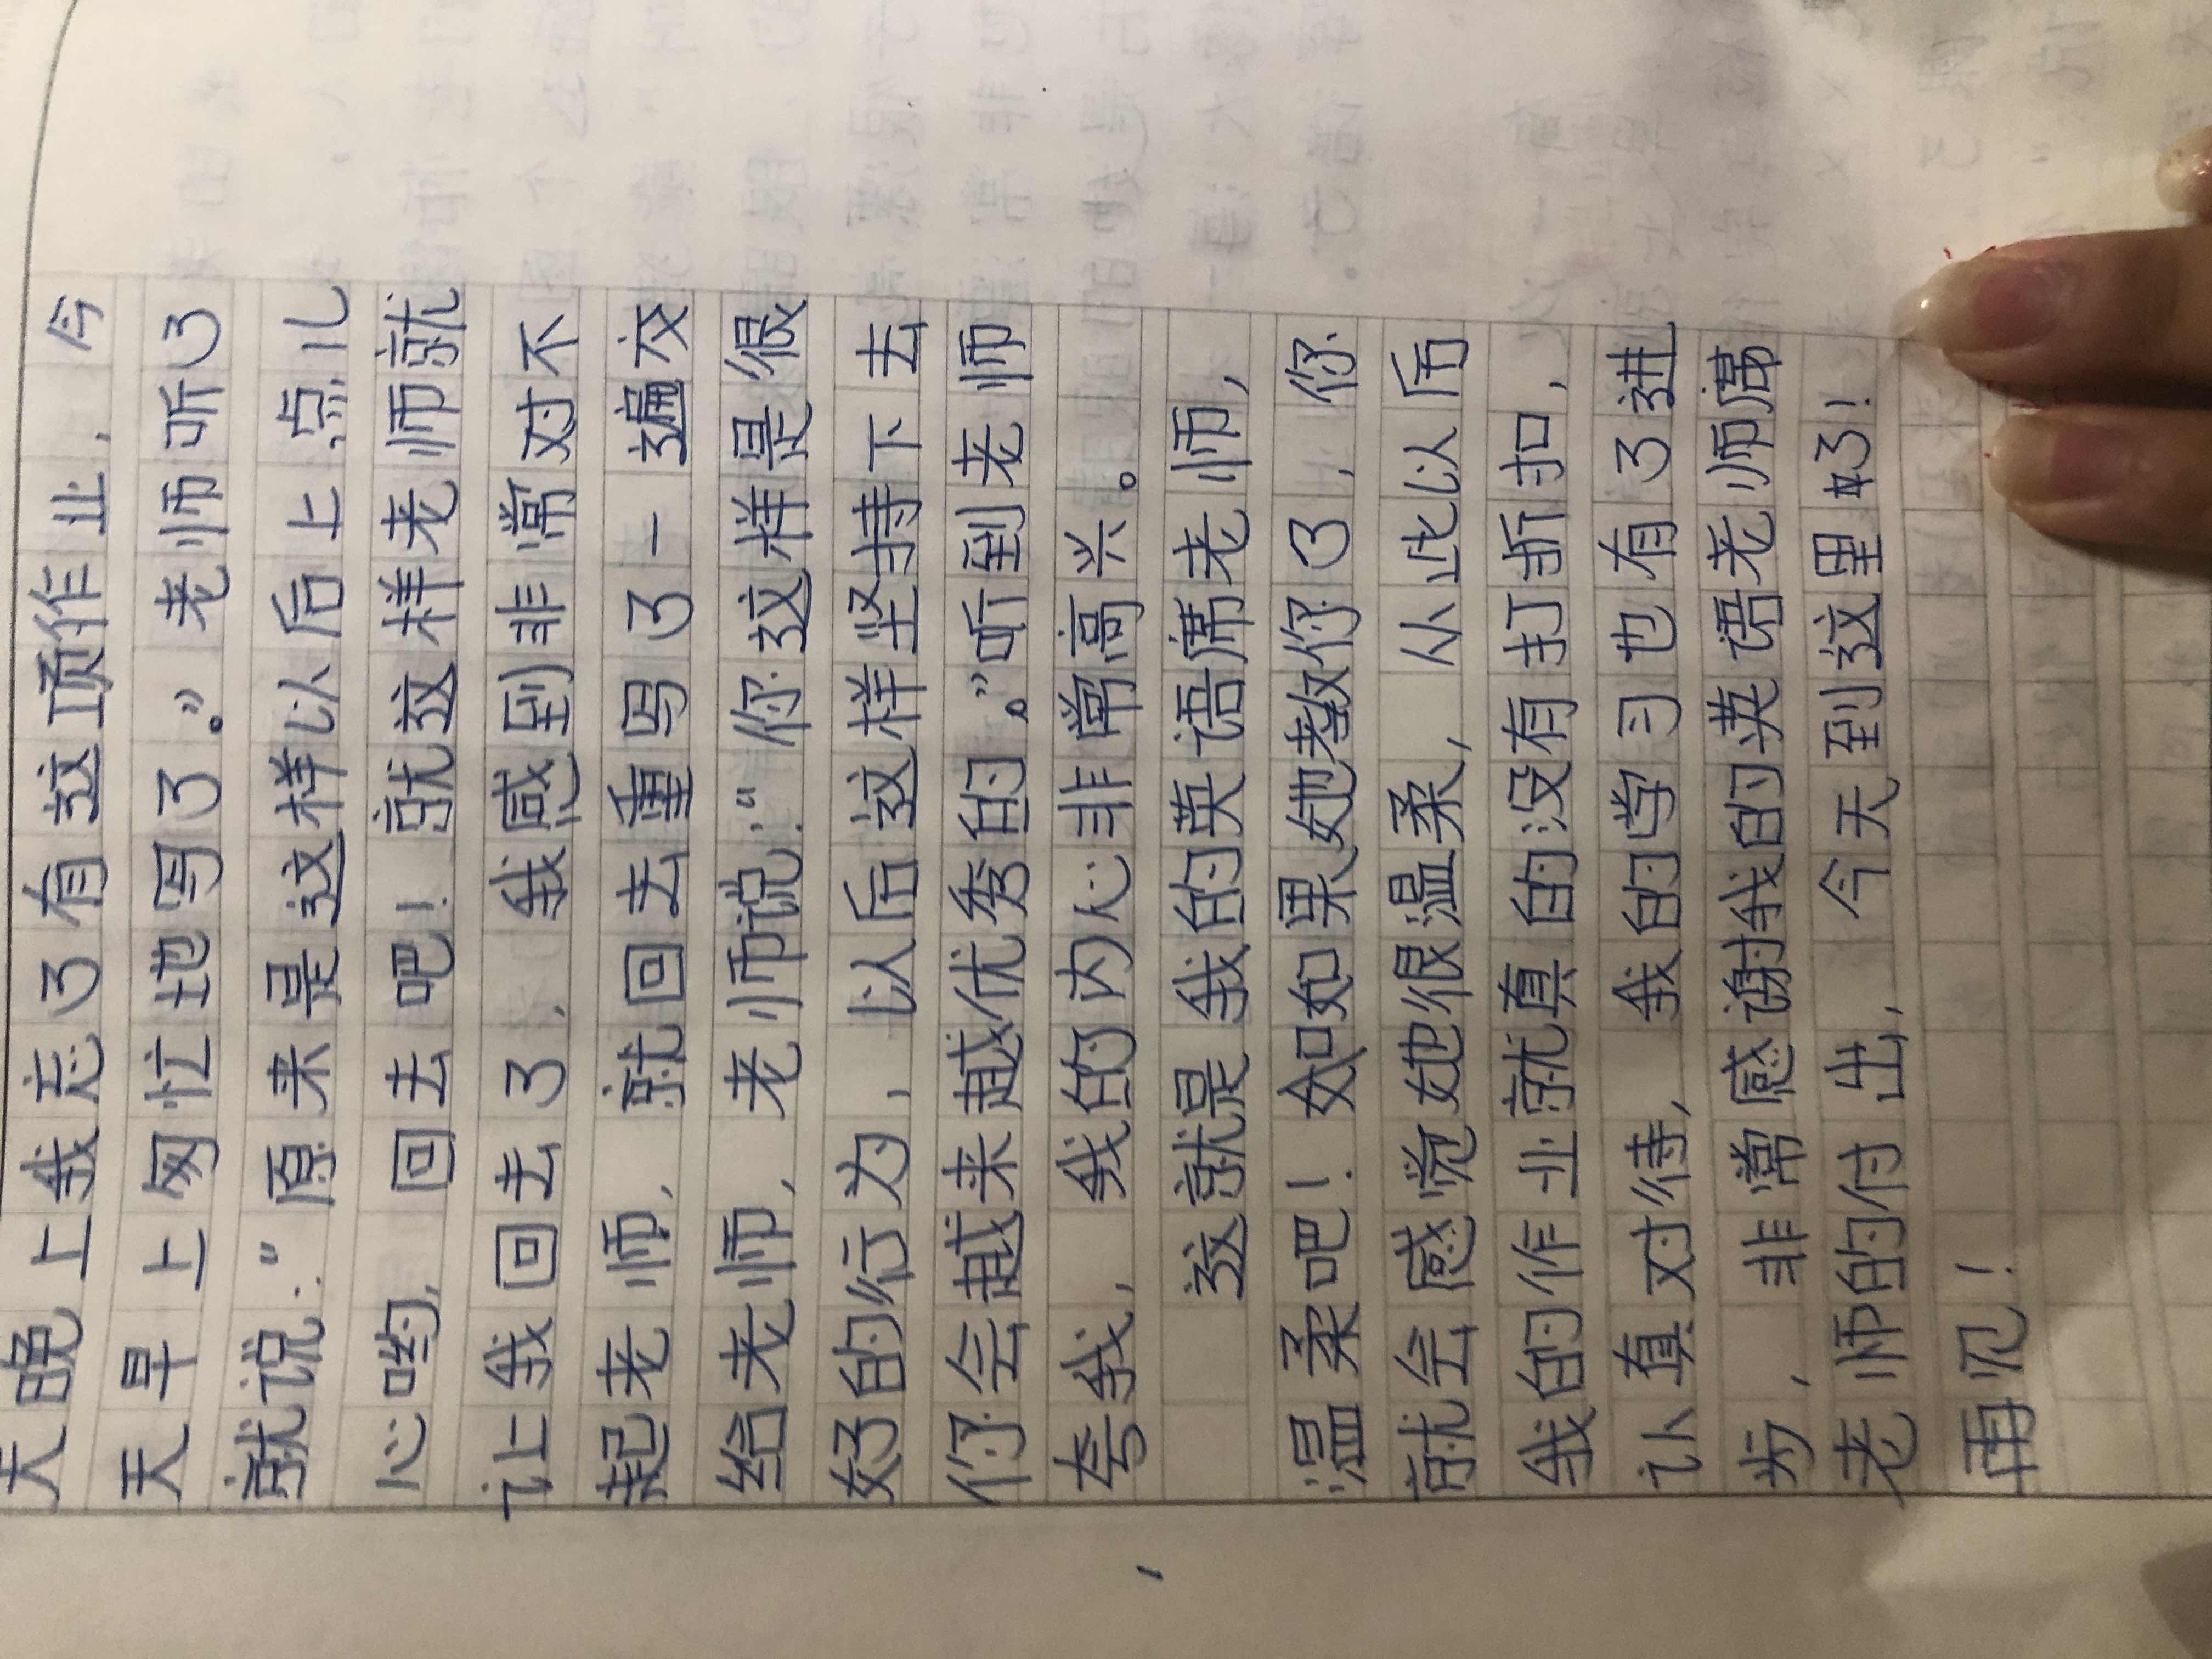 天晚上我忘了有这项作业，今
天早上匆忙地写了。”老师听了
就说：“原来是这样以后上点儿
心哟，回去吧！就这样老师就
让我回去了，我感到非常对不
起老师，就回去重写了一遍交
给老师，老师说：“你这样是很
好的行为，以后这样坚持下去
你会越来越优秀的。”听到老师
夸我，我的内心非常高兴。
这就是我的英语席老师，
温柔吧！如果她教你了，你
就会感觉她很温柔，从此以后
我的作业就真的没有打折扣，
认真对待，我的学习也有了进
步，非常感谢我的英语老师席
老师的付出，今天到这里了！
再见！